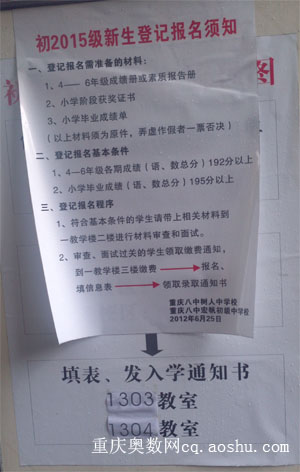 初2015级新生登记报名须知
一、登记报名需准备的材料：
1、4—— 6年级成绩册或素质报告册
2、小学阶段获奖证书
3、小学毕业成绩单
（以上材料须为原件，弄虚作假者一票否决）
二、登记报名基本条件
1、4—6年级各期成绩（语、数总分）192分以上
2、小学毕业成绩（语、数总分）195分以上
三、登记报名程序
1、符合基本条件的学生请带上相关材料到
一教学楼二楼进行材料审查和面试。
2、审查、面试过关的学生领取缴费通知，
到一教学楼三楼缴费 → 报名、
填信息表 → 领取录取通知书
重庆八中树人中学校
重庆八中宏帆初级中学校
2012年6月25日
图
填表、发入学通知书
1303教室
1304教室
重庆奥数网cq.aoshu.com